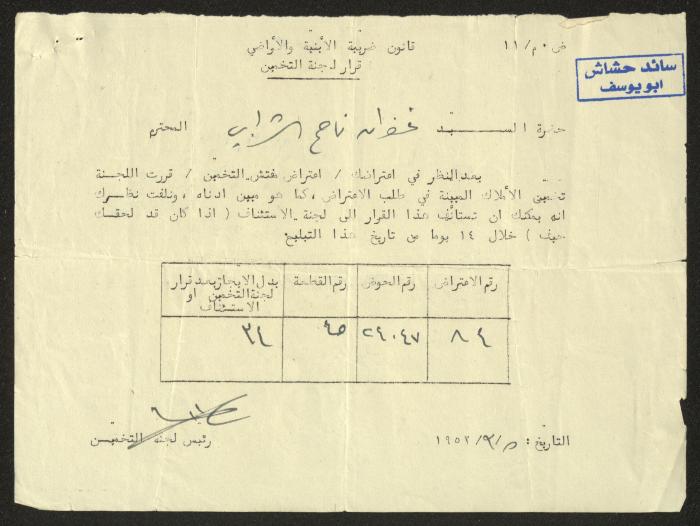 ض ٠ م/ ١١
قانون ضريبة الأبنية والأراضي
قرار لجنة التخمين
سائد حشاش
ابو يوسف
حضرة الســـــيد ناجح الشرابي المحترم
بعد النظر في اعتراضك / اعتراض مفتش التخمين / قررت اللجنة
تخمين الأملاك المبينة في طلب الاعتراض ، كما هو مبين ادناه ، ونلفت نظرك
انه يمكنك ان تستأنف هذا القرار الى لجنة الاستئناف ( اذا كان قد لحقك
حيف ) خلال ١٤ يوما من تاريخ هذا التبليغ
رقم الاعتراض رقم الحوض رقم القطعة بدل الايجار بعد قرار
لجنة التخمين او
الاستئناف
٨٤ ٢٤٠٤٧ ٤٥ ٣٤
التاريخ : ١٩٥٢/٣/٥
رئيس لجنة التخمين